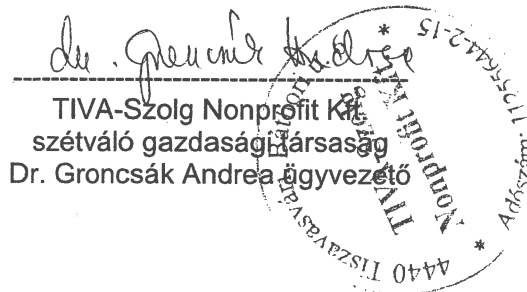 dr. Groncsák Andrea
TIVA-Szolg Nonprofit Kft.
szétváló gazdasági társaság
Dr. Groncsák Andrea ügyvezető
TIVA-Szolg
Nonprofit Kft.
4440 Tiszavasvári, Báthori u.
Adószám: 11255644-2-15